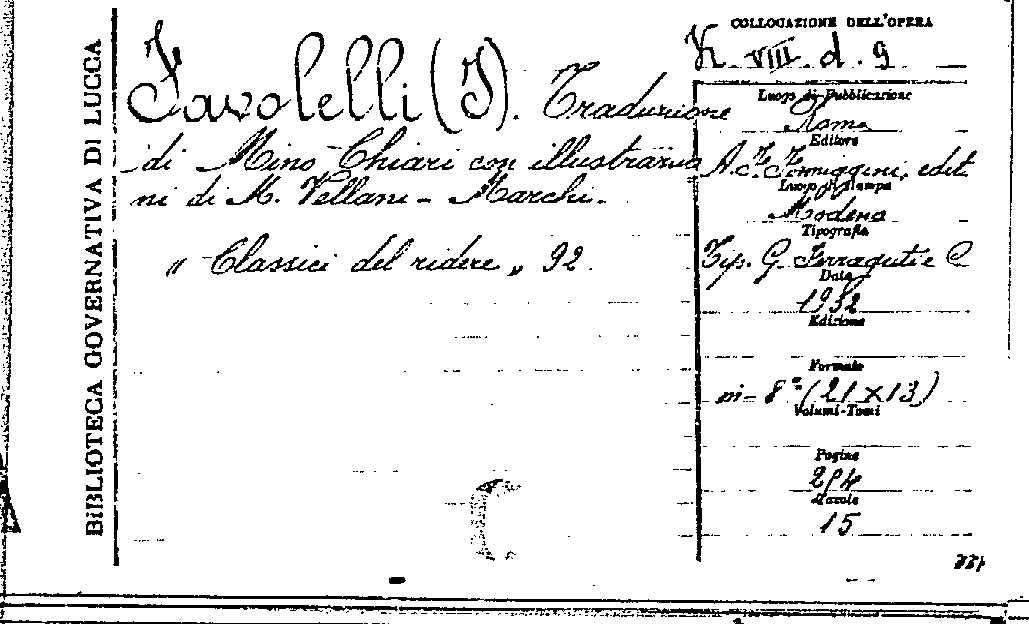 BIBLIOTECA GOVERNATIVA DI LUCCA
Favolelli (I). Traduzione
di Mino Chiari con illustrazio
ni di M. Vellani - Marchi.
"Classici del ridere" 92.
COLLOCAZIONE DELL'OPERA
VIII. d. 9
Luogo di Pubblicazione
Roma
Editore
A. F. Formiggini, edit.
Luogo di Stampa
Modena
Tipografia
Tip. G. Ferraguti e C
Data
1932
Edizione
Formato
in-8° (21 x 13)
Volumi-Tomi
Pagine
294
Tavole
15